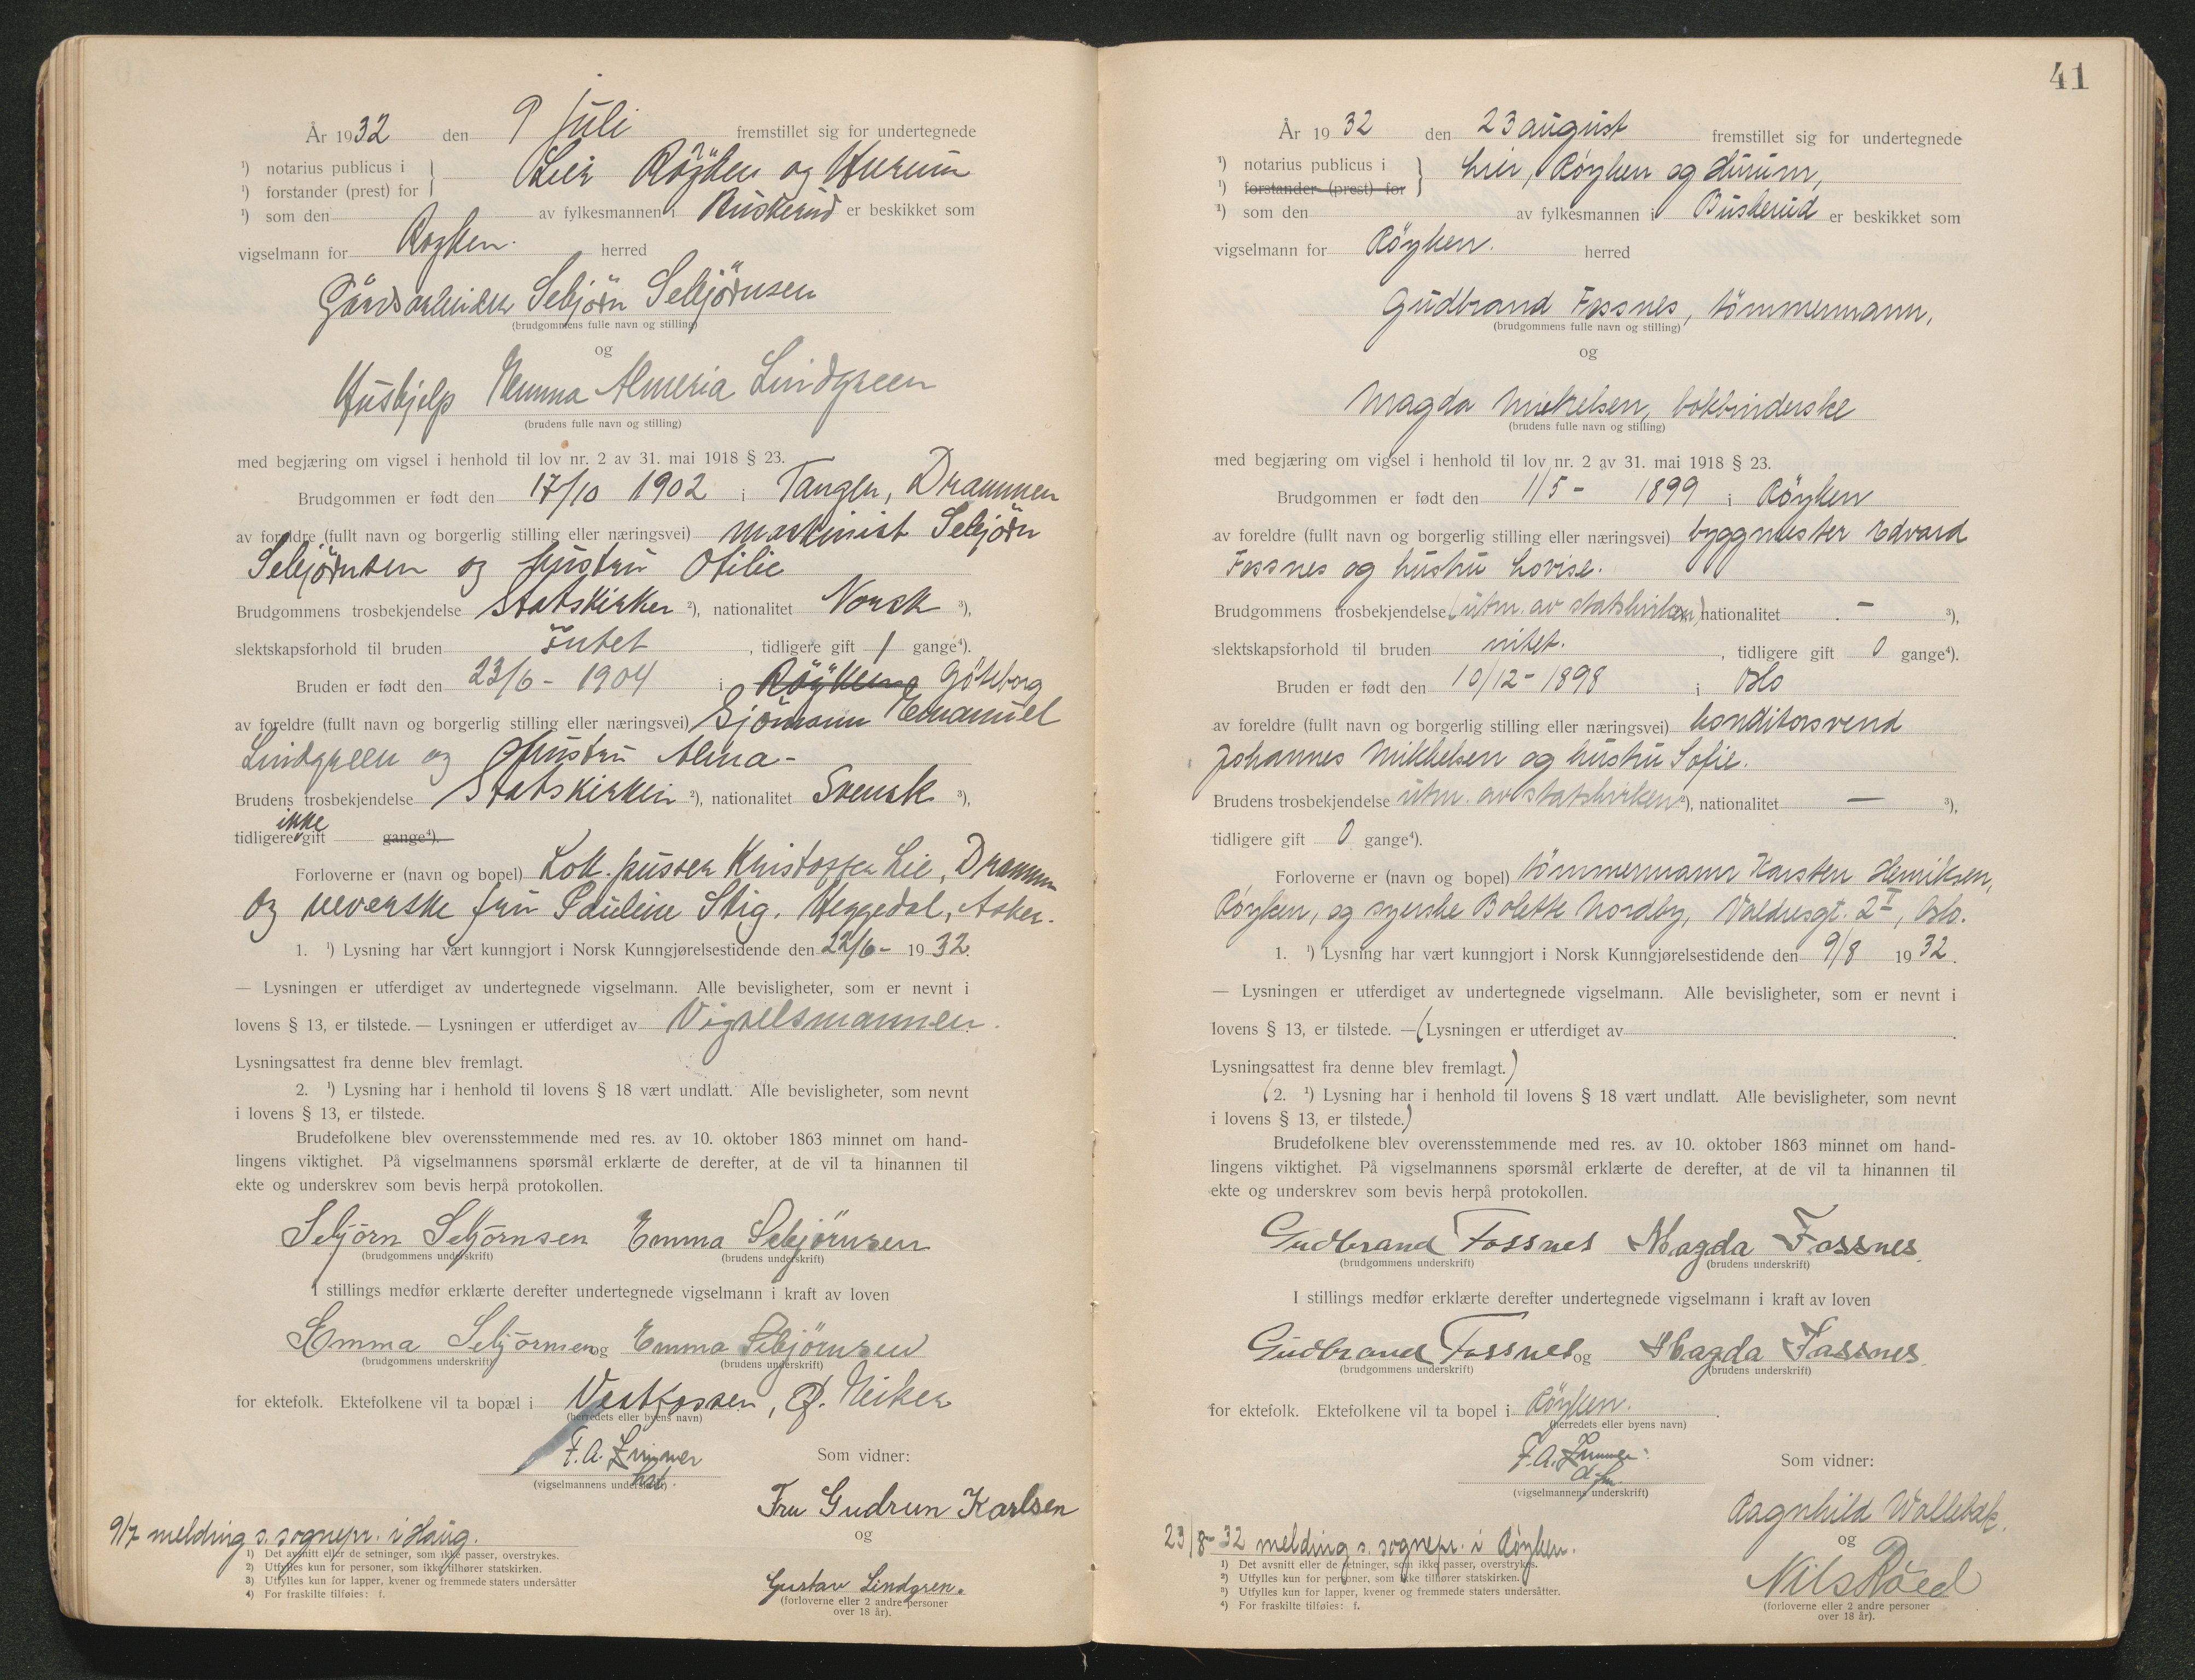 År 1932 den 9 juli fremstillet sig for undertegnede
¹) notarius publicus i
¹) forstander (prest) for } Lier Röyken og Hurum
¹) som den av fylkesmannen i Buskerud er beskikket som
vigselmann for Röyken. herred
Gårdsarbeider Sebjörn Sebjörnsen
(brudgommens fulle navn og stilling)
og
Hushjelp Emma Almeria Lindgreen
(brudens fulle navn og stilling)
med begjæring om vigsel i henhold til lov nr. 2 av 31. mai 1918 § 23.
Brudgommen er født den 17/10 1902 i Tangen, Drammen
av foreldre (fullt navn og borgerlig stilling eller næringsvei) maskinist Sebjörn
Sebjörnsen og hustru Otilie
Brudgommens trosbekjendelse Statskirken ²), nationalitet Norsk ³),
slektskapsforhold til bruden intet, tidligere gift 1 gange⁴).
Bruden er født den 23/6 - 1904 i Röyken Göteborg
av foreldre (fullt navn og borgerlig stilling eller næringsvei) Sjömann Emanuel
Lindgreen og hustru Alma -
Brudens trosbekjendelse Statskirken ²), nationalitet Svensk ³),
tidligere ikke gift gange⁴).
Forloverne er (navn og bopel) Lok. pusser Kristoffer Lie, Drammen
og veverske fru Pauline Stig. Heggedal, Asker.
1. ¹) Lysning har vært kunngjort i Norsk Kunngjørelsestidende den 22/6 - 1932.
— Lysningen er utferdiget av undertegnede vigselmann. Alle bevisligheter, som er nevnt i
lovens § 13, er tilstede. — Lysningen er utferdiget av Vigselsmannen.
Lysningsattest fra denne blev fremlagt.
2. ¹) Lysning har i henhold til lovens § 18 vært undlatt. Alle bevisligheter, som nevnt
i lovens § 13, er tilstede.
Brudefolkene blev overensstemmende med res. av 10. oktober 1863 minnet om hand-
lingens viktighet. På vigselmannens spørsmål erklærte de derefter, at de vil ta hinannen til
ekte og underskrev som bevis herpå protokollen.
Sebjörn Sebjörnsen Emma Sebjörnsen
(brudgommens underskrift) (brudens underskrift)
I stillings medfør erklærte derefter undertegnede vigselmann i kraft av loven
Emma Sebjörnsen og Emma Sebjörnsen
(brudgommens underskrift) (brudens underskrift)
for ektefolk. Ektefolkene vil ta bopæl i Vestfossen, Ø. Eiker
(herredets eller byens navn)
F. A. Som vidner:
(vigselmannens underskrift)
Fru Gudrun Karlsen
9/7 melding s. sognepr. i Haug. og
1) Det avsnitt eller de setninger, som ikke passer, overstrykes.
2) Utfylles kun for personer, som ikke tilhører statskirken.
3) Utfylles kun for lapper, kvener og fremmede staters undersåtter
4) For fraskilte tilføies: f.
Gustav Lindgren.
(forloverne eller 2 andre personer
over 18 år).
41
År 1932 den 23 august fremstillet sig for undertegnede
¹) notarius publicus i
¹) forstander (prest) for } Lier, Röyken og Hurum,
¹) som den av fylkesmannen i Buskerud er beskikket som
vigselmann for Röyken. herred
Gudbrand Fossnes, tömmermann,
(brudgommens fulle navn og stilling)
og
Magda Mikkelsen, bokbinderske
(brudens fulle navn og stilling)
med begjæring om vigsel i henhold til lov nr. 2 av 31. mai 1918 § 23.
Brudgommen er født den 1/5 - 1899 i Röyken
av foreldre (fullt navn og borgerlig stilling eller næringsvei) byggmester Edvard
Fossnes og hustru Lovise.
Brudgommens trosbekjendelse (utm. av statskirken) nationalitet - ³),
slektskapsforhold til bruden intet. , tidligere gift 0 gange⁴).
Bruden er født den 10/12 - 1898 i Oslo
av foreldre (fullt navn og borgerlig stilling eller næringsvei) konditorsvend
Johannes Mikkelsen og hustru Sofie.
Brudens trosbekjendelse utm. av statskirken ²), nationalitet — ³),
tidligere gift 0 gange⁴).
Forloverne er (navn og bopel) tömmermann Karsten Henriksen,
Röyken, og syerske Bolette Nordby, Valdresgt. 2 I, Oslo.
1. ¹) Lysning har vært kunngjort i Norsk Kunngjørelsestidende den 9/8 1932.
— Lysningen er utferdiget av undertegnede vigselmann. Alle bevisligheter, som er nevnt i
lovens § 13, er tilstede. — (Lysningen er utferdiget av .
Lysningsattest fra denne blev fremlagt.)
(2. ¹) Lysning har i henhold til lovens § 18 vært undlatt. Alle bevisligheter, som nevnt
i lovens § 13, er tilstede.)
Brudefolkene blev overensstemmende med res. av 10. oktober 1863 minnet om hand-
lingens viktighet. På vigselmannens spørsmål erklærte de derefter, at de vil ta hinannen til
ekte og underskrev som bevis herpå protokollen.
Gudbrand Fossnes Magda Fossnes.
(brudgommens underskrift) (brudens underskrift)
I stillings medfør erklærte derefter undertegnede vigselmann i kraft av loven
Gudbrand Fossnes og Magda Fossnes.
(brudgommens underskrift) (brudens underskrift)
for ektefolk. Ektefolkene vil ta bopel i Röyken.
(herredets eller byens navn)
F. A. Som vidner:
(vigselmannens underskrift)
Ragnhild Wollebæk.
23/8-32 melding s. sognepr. i Röyken. og
1) Det avsnitt eller de setninger, som ikke passer, overstrykes.
2) Utfylles kun for personer, som ikke tilhører statskirken.
3) Utfylles kun for lapper, kvener og fremmede staters undersåtter.
4) For fraskilte tilføies: f.
Nils Röed
(forloverne eller 2 andre personer
over 18 år).